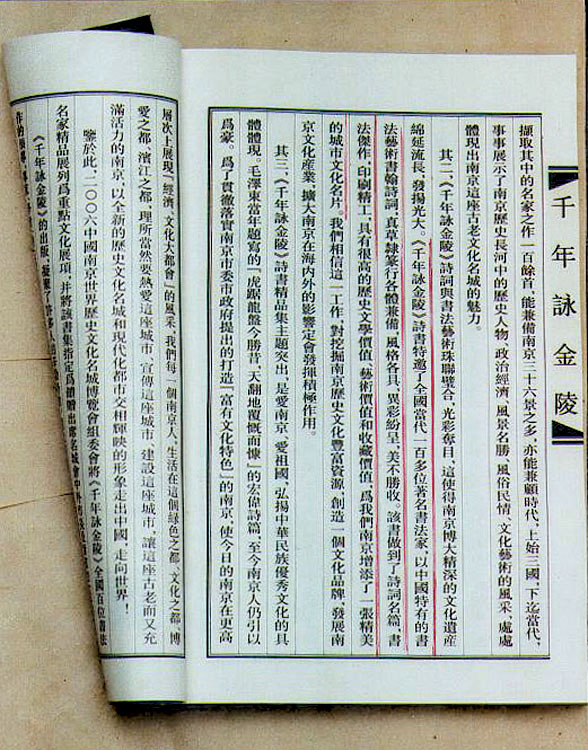 千年詠金陵
擷取其中的名家之作一百餘首，能兼備南京三十六景之多，亦能兼顧時代，上始三國，下迄當代，
事事展示了南京歷史長河中的歷史人物，政治經濟，風景名勝，風俗民情，文化藝術的風采，處處
體現出南京這座古老文化名城的魅力。
其二、《千年詠金陵》詩詞與書法藝術珠聯璧合，光彩奪目，這使得南京博大精深的文化遺產
綿延流長，發揚光大。《千年詠金陵》詩書特邀了全國當代一百多位著名書法家，以中國特有的書
法藝術書翰詩詞，真草隸篆行各體兼備，風格各具，異彩紛呈，美不勝收。該書做到了詩詞名篇，書
法傑作，印刷精工，具有很高的歷史文學價值，藝術價值和收藏價值，爲我們南京增添了一張精美
的城市文化名片。我們相信這一工作，對挖掘南京歷史文化豐富資源，創造一個文化品牌，發展南
京文化産業，擴大南京在海内外的影響定會發揮積極作用。
其三、《千年詠金陵》詩書精品集主題突出，是愛南京，愛祖國，弘揚中華民族優秀文化的具
體體現。毛澤東當年題寫的「虎踞龍盤今勝昔，天翻地覆慨而慷」的宏偉詩篇，至今南京人仍引以
爲豪。爲了貫徹落實南京市委市政府提出的打造「富有文化特色」的南京，使今日的南京在更高
層次上展現「經濟、文化大都會」的風采，我們每一個南京人，生活在這個緑色之都、文化之都、博
愛之都、濱江之都，理所當然要熱愛這座城市，宣傳這座城市，建設這座城市，讓這座古老而又充
滿活力的南京，以全新的歷史文化名城和現代化都市交相輝映的形象走出中國，走向世界！
鑒於此，二〇〇六中國南京世界歷史文化名城博覽會組委會將《千年詠金陵》全國百位書法
名家精品展列爲重點文化展項，并將該書集指定爲饋贈出席名城會中外
《千年詠金陵》的出版，凝聚了許多人
作的